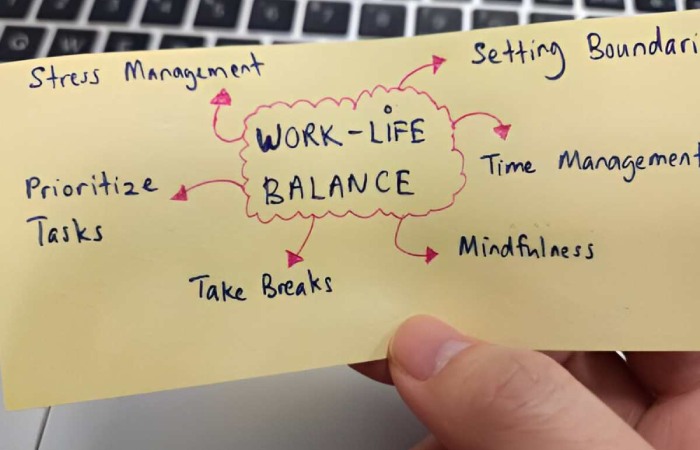 Stress Management
Setting Boundari
WORK-LiFE
BALANCE
Time Management
Prioritize
Tasks
Mindfulness
Take Breaks